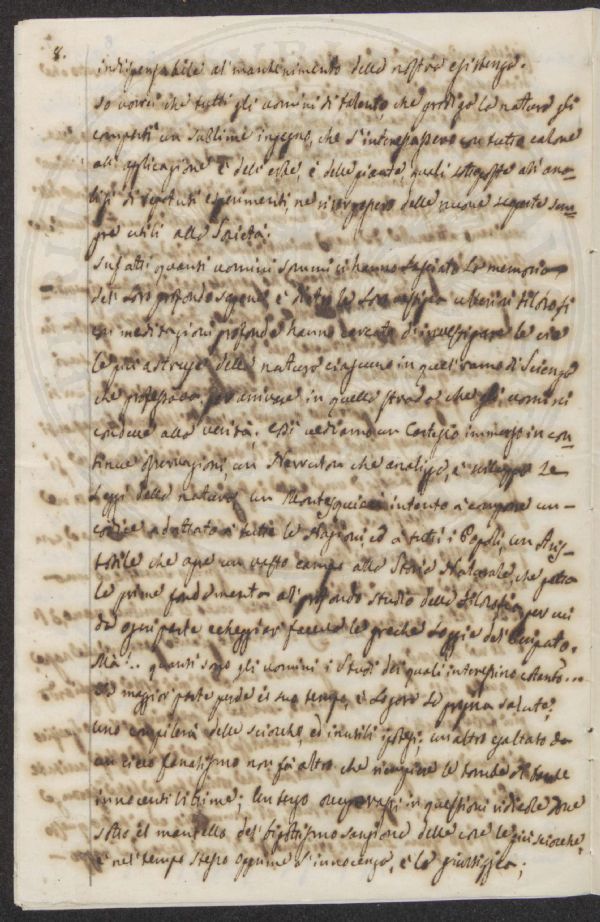 8.
indispensabile al mantenimento della nostra esistenza.
Io vorrei che tutti gli uomini di talento, che prodiga la natura gli
compartì un sublime ingegno, che s'interessassero con tutto calore
all'applicazione e dell' e delle piante, quali sottoposte all'ana-
lisi di replicati esperimenti, ne delle nuove scoperte sem-
pre utili alla Società.
Infatti quanti uomini sommi ci hanno lasciato la memoria
del loro profondo sapere, e dietro la loro ulteriori filosofi
con meditazioni profonde hanno cercato d'investigare le vie
le più astruse della natura ciascuno in quel ramo di Scienza
che professava per arrivare in quella strada che gli uomini
conduce alla verità. Così vediamo un Cartesio immerso in con-
tinue osservazioni, un Newuton che analizza, e sviluppa le
Leggi della natura, un Montesquieu intento a comporre un
codice adattato a tutte le Nazioni ed a tutti i Popoli, un Aris-
totile che apre un vasto campo alla Storia Naturale, che getta
le prime fondamenta al profondo studio della Filosofia per cui
da ogni parte echeggiar facea le greche Loggie del
Ma!.. quanti sono gli uomini i Studi dei quali interessino
La maggior parte perde il suo tempo, e logora la propria salute;
uno compilerà delle sciocche, ed inutili ; un altro esaltato da
un cieco fanatismo non fa altro che riempiere le tombe di tante
innocenti vittime; Un terzo occuperassi in questioni ridicole, dove
sotto il mantello del bigottismo delle cose le più sciocche,
e nel tempo stesso opprime l'innocenza, e la giustizia;